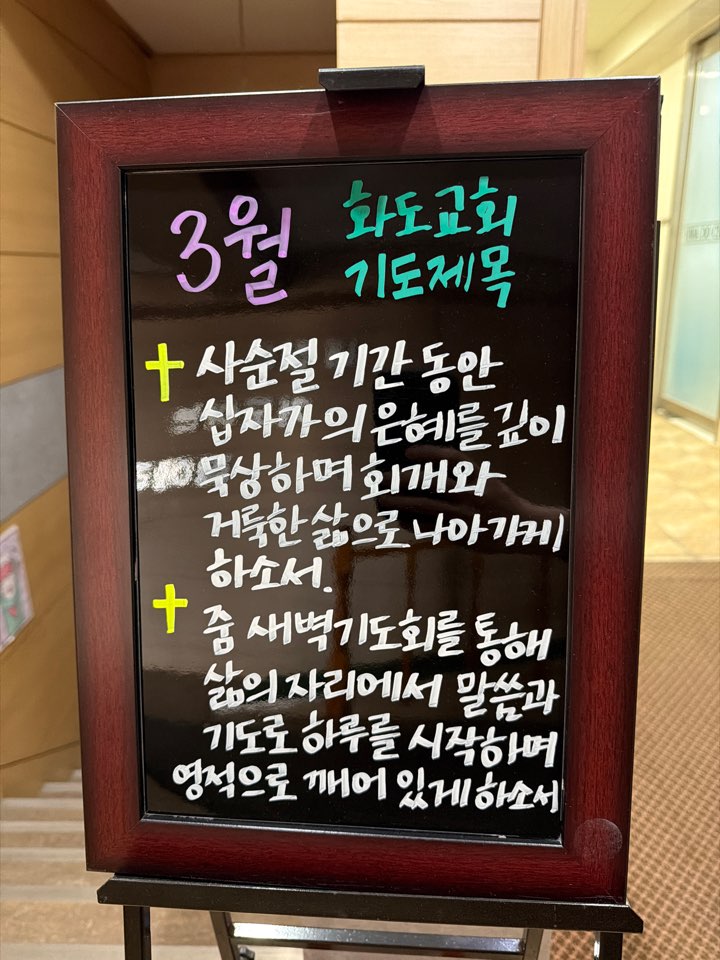 3월 화도교회
기도제목
✝ 사순절 기간 동안
십자가의 은혜를 깊이
묵상하며 회개와
거룩한 삶으로 나아가게
하소서.
✝ 줌 새벽기도회를 통해
삶의 자리에서 말씀과
기도로 하루를 시작하며
영적으로 깨어 있게 하소서